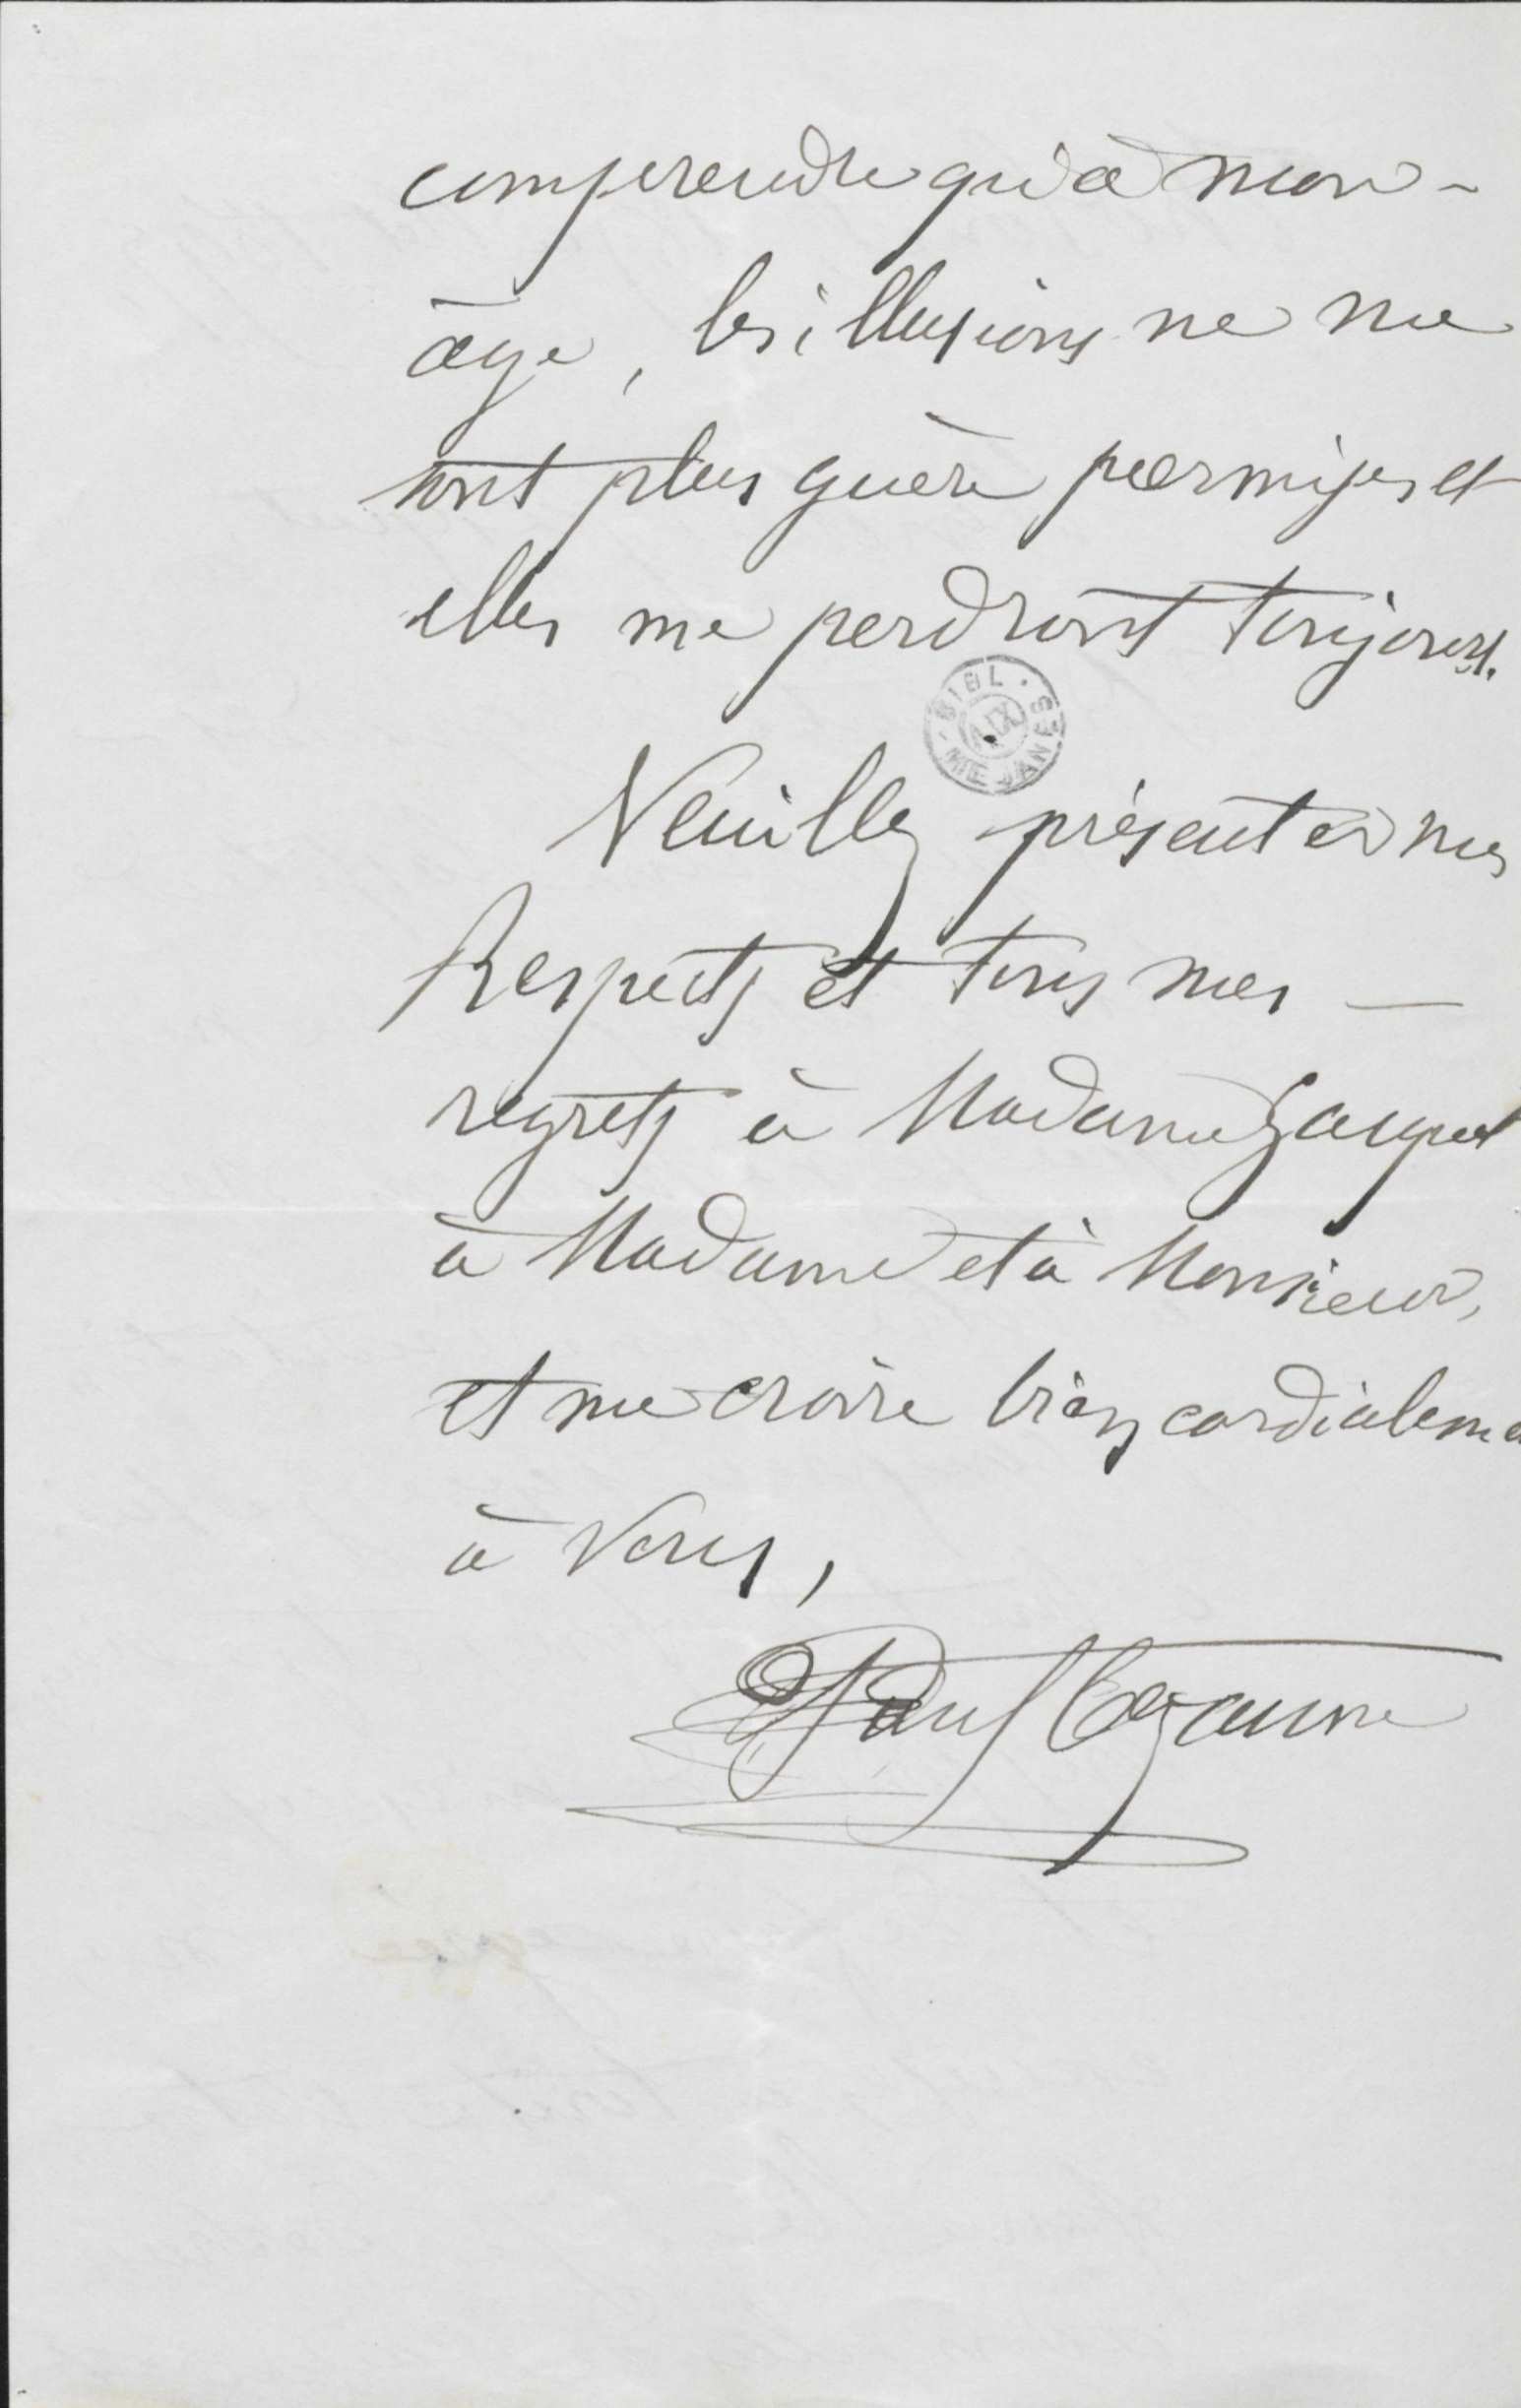 comprendre qu'à mon -
âge, les illusions ne me
sont plus guère permises et
elles me perdront toujours.
BIBL. MEJANES
AIX
Veuillez présenter mes
Respects et tous mes —
regrets à Madame Gasquet
à Madame et à Monsieur,
et me croire bien cordialeme
à vous,
Paul Cezanne